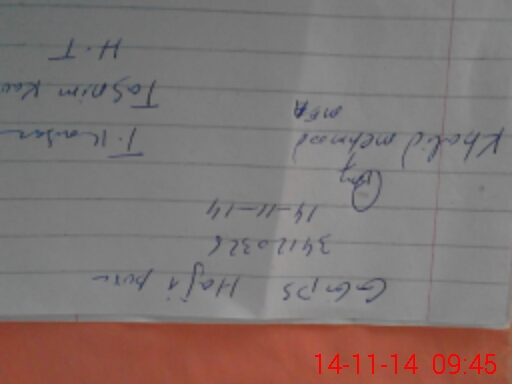 GGPS Haji pura
34120326
14-11-14
Khalid mehmood T. Kausar
MEA Tasnim Kau
H.T
14-11-14 09:45